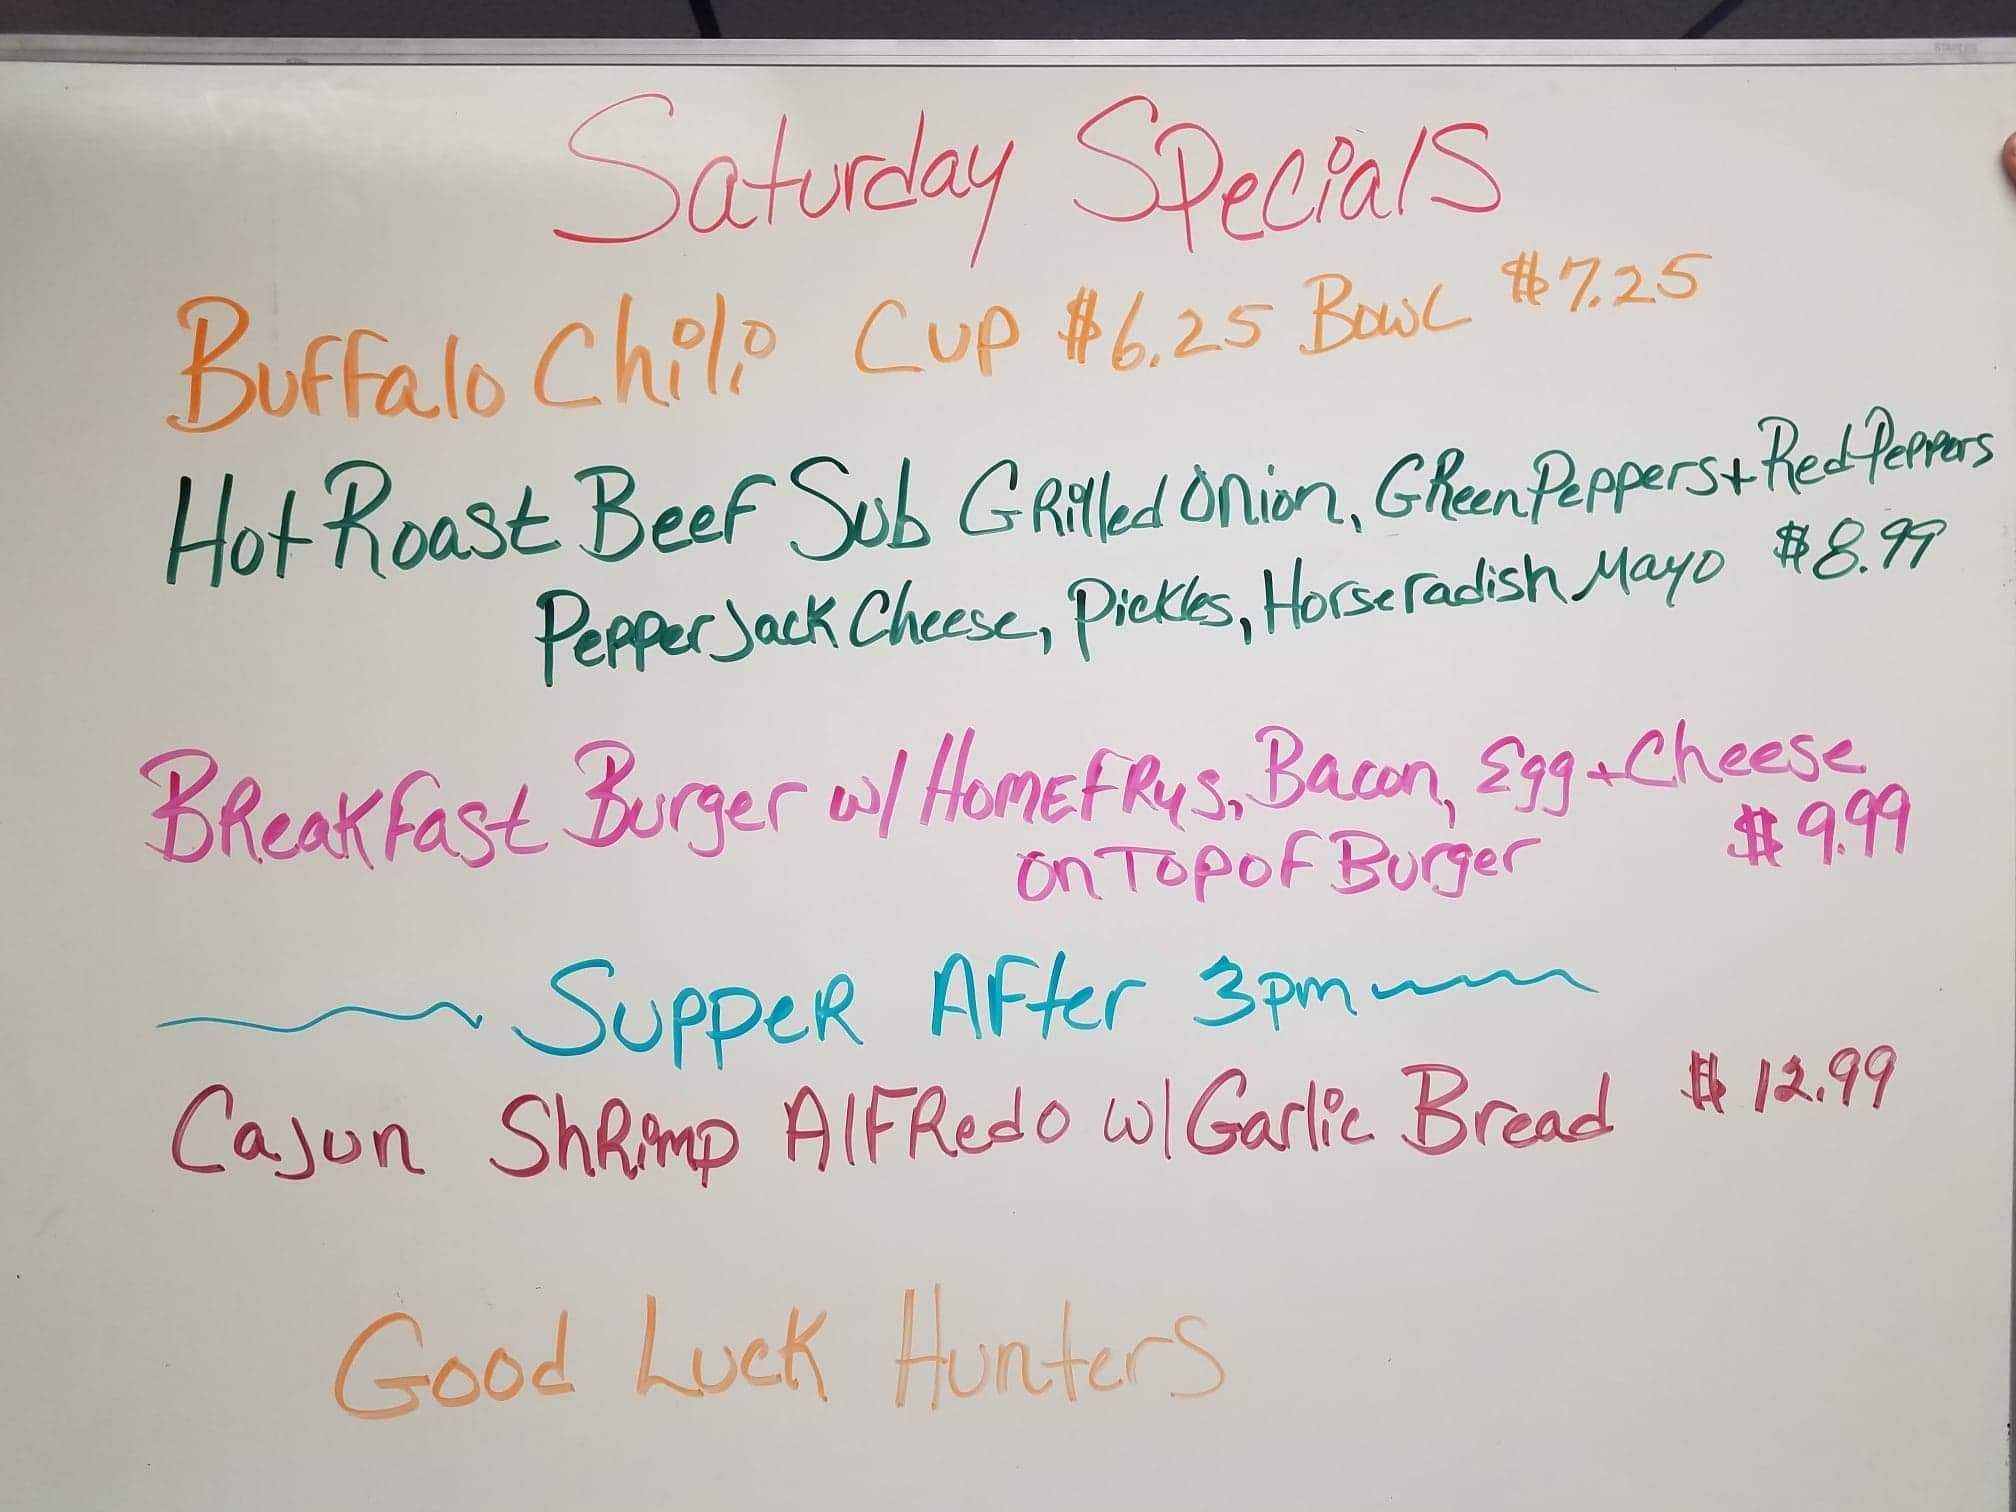 Saturday Specials
Buffalo Chili Cup $6.25 Bowl $7.25
Hot Roast Beef Sub Grilled Onion, Green Peppers + Red Peppers
Pepper Jack Cheese, Pickles, Horseradish Mayo $8.99
Breakfast Burger w/ Homefrys, Bacon, Egg + Cheese
on Top of Burger $9.99
Supper After 3pm
Cajun Shrimp Alfredo w/ Garlic Bread $12.99
Good Luck Hunters